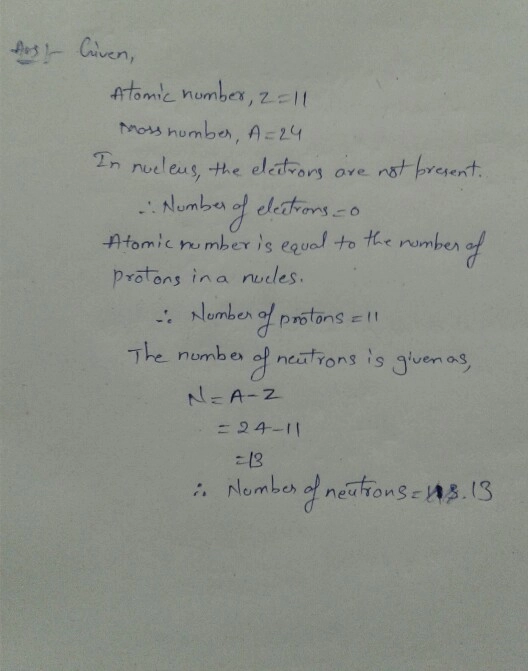 Ans:- Given,
Atomic number, Z=11
Mass number, A=24
In nucleus, the electrons are not present.
∴ Number of electrons=0
Atomic number is equal to the number of
protons in a nucles.
∴ Number of protons =11
The number of neutrons is given as,
N=A-Z
=24-11
=13
∴ Number of neutrons= 13